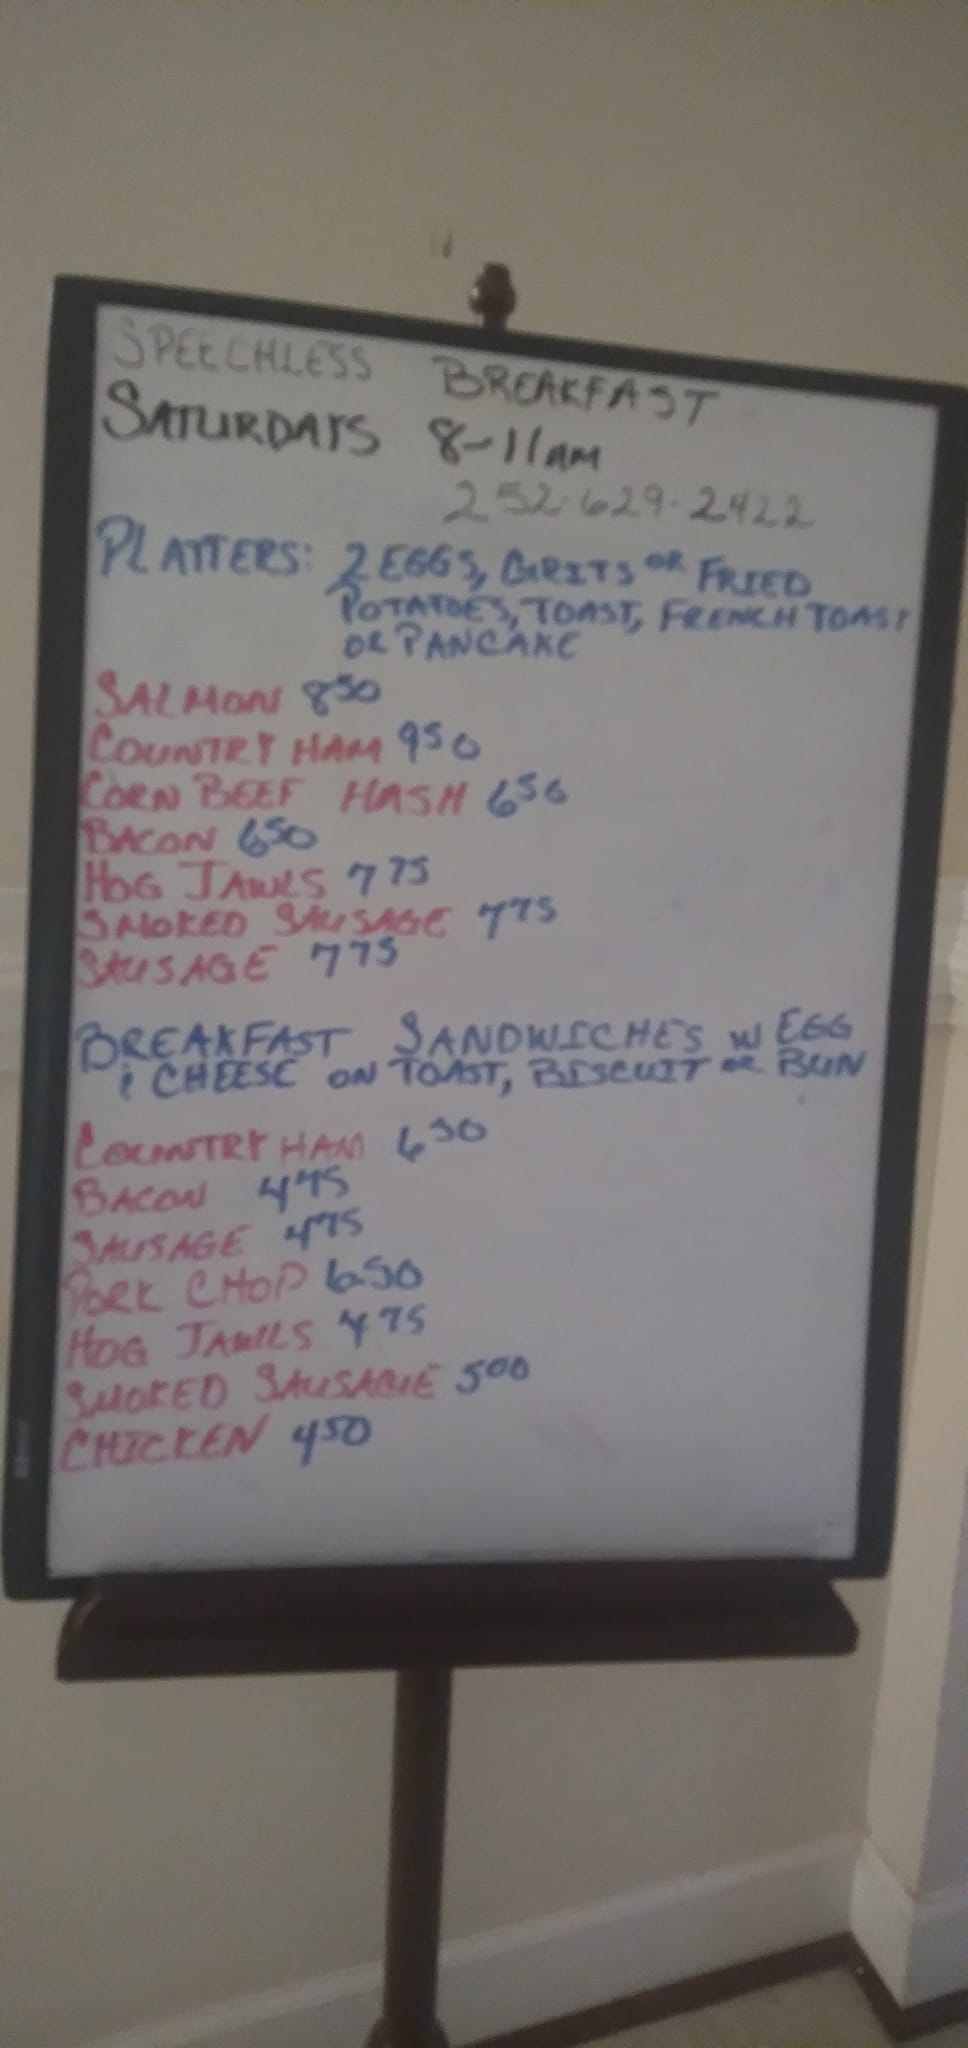 SPEECHLESS BREAKFAST
SATURDAYS 8-11am
252-629-2422
PLATTERS: 2 EGGS, GRITS OR FRIED
POTATOES, TOAST, FRENCH TOAST
OR PANCAKE
SALMON 850
COUNTRY HAM 950
CORN BEEF HASH 650
BACON 650
HOG JAWLS 775
SMOKED SAUSAGE 775
SAUSAGE 775
BREAKFAST SANDWICHES W EGG
& CHEESE ON TOAST, BISCUIT OR BUN
COUNTRY HAM 650
BACON 475
SAUSAGE 475
PORK CHOP 650
HOG JAWLS 475
SMOKED SAUSAGE 500
CHICKEN 450